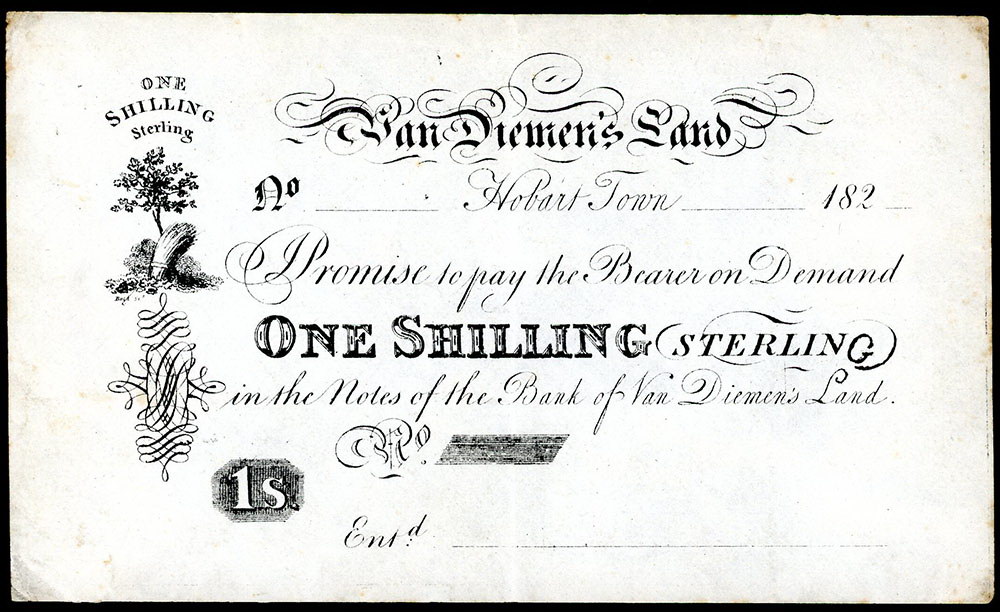 ONE
SHILLING
Sterling
Van Diemen's Land
No Hobart Town 182
I Promise to pay the Bearer on Demand
ONE SHILLING STERLING
in the Notes of the Bank of Van Diemen's Land.
No.
1s.
Entd